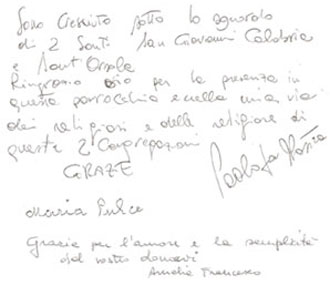 Sono cresciuto sotto lo sguardo
di 2 Santi San Giovanni Calabria
e Sant'Orsola
Ringrazio Dio per la presenza in
questa parrocchia e nella mia via
dei religiosi e delle religiose di
queste 2 Congregazioni
GRAZE
Maria
Grazie per l'amore e la semplicità
del vostro donarvi
Amelia Francesco